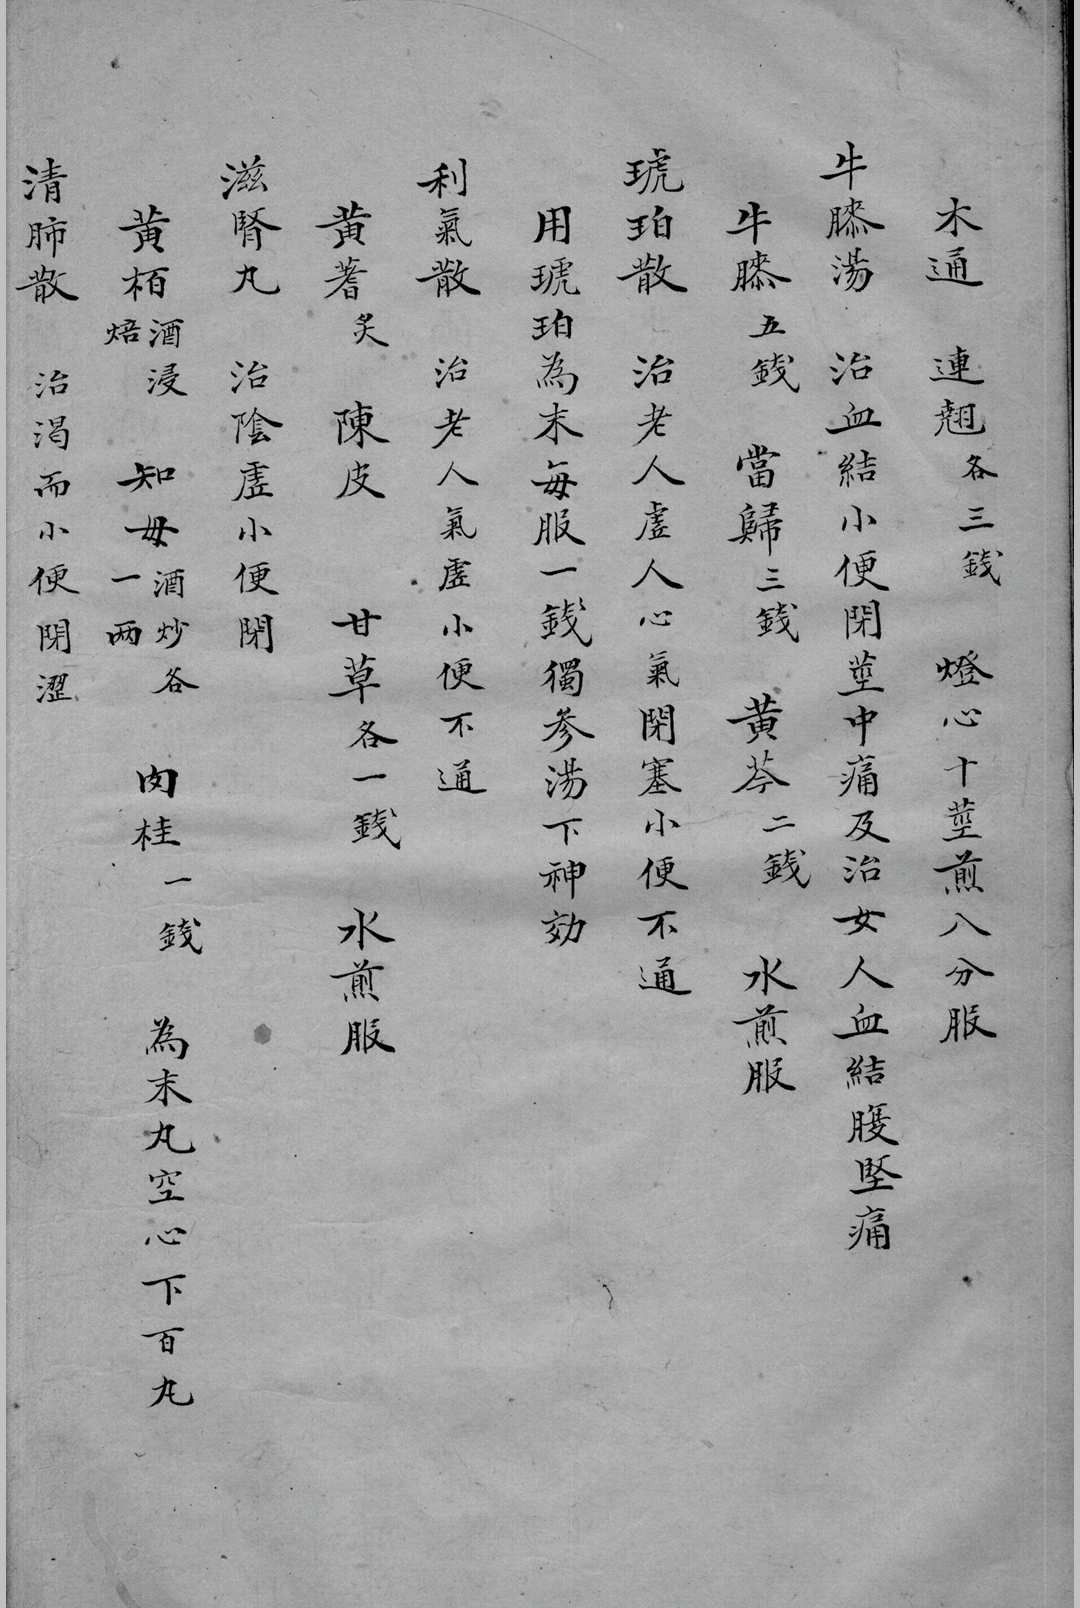 木通 連翹各三錢 燈心十莖煎八分服
牛膝湯 治血結小便閉莖中痛及治女人血結腹堅痛
牛膝五錢 當歸三錢 黃芩二錢 水煎服
琥珀散 治老人虛人心氣閉塞小便不通
用琥珀為末每服一錢獨參湯下神効
利氣散 治老人氣虛小便不通
黃蓍炙 陳皮 甘草各一錢 水煎服
滋腎丸 治陰虛小便閉
黃栢酒浸焙 知母酒炒各一两 肉桂一錢 為末丸空心下百丸
清肺散 治渴而小便閉澀